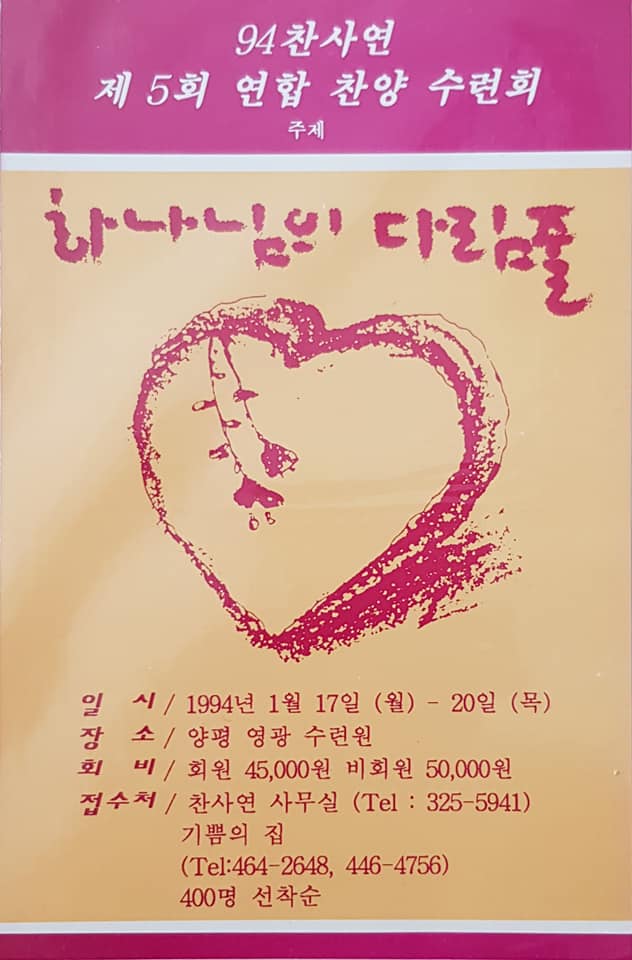 94찬사연
제 5회 연합 찬양 수련회
주제
하나님의 다림줄
일 시 / 1994년 1월 17일 (월) - 20일 (목)
장 소 / 양평 영광 수련원
회 비 / 회원 45,000원 비회원 50,000원
접수처 / 찬사연 사무실 (Tel : 325-5941)
기쁨의 집
(Tel:464-2648, 446-4756)
400명 선착순